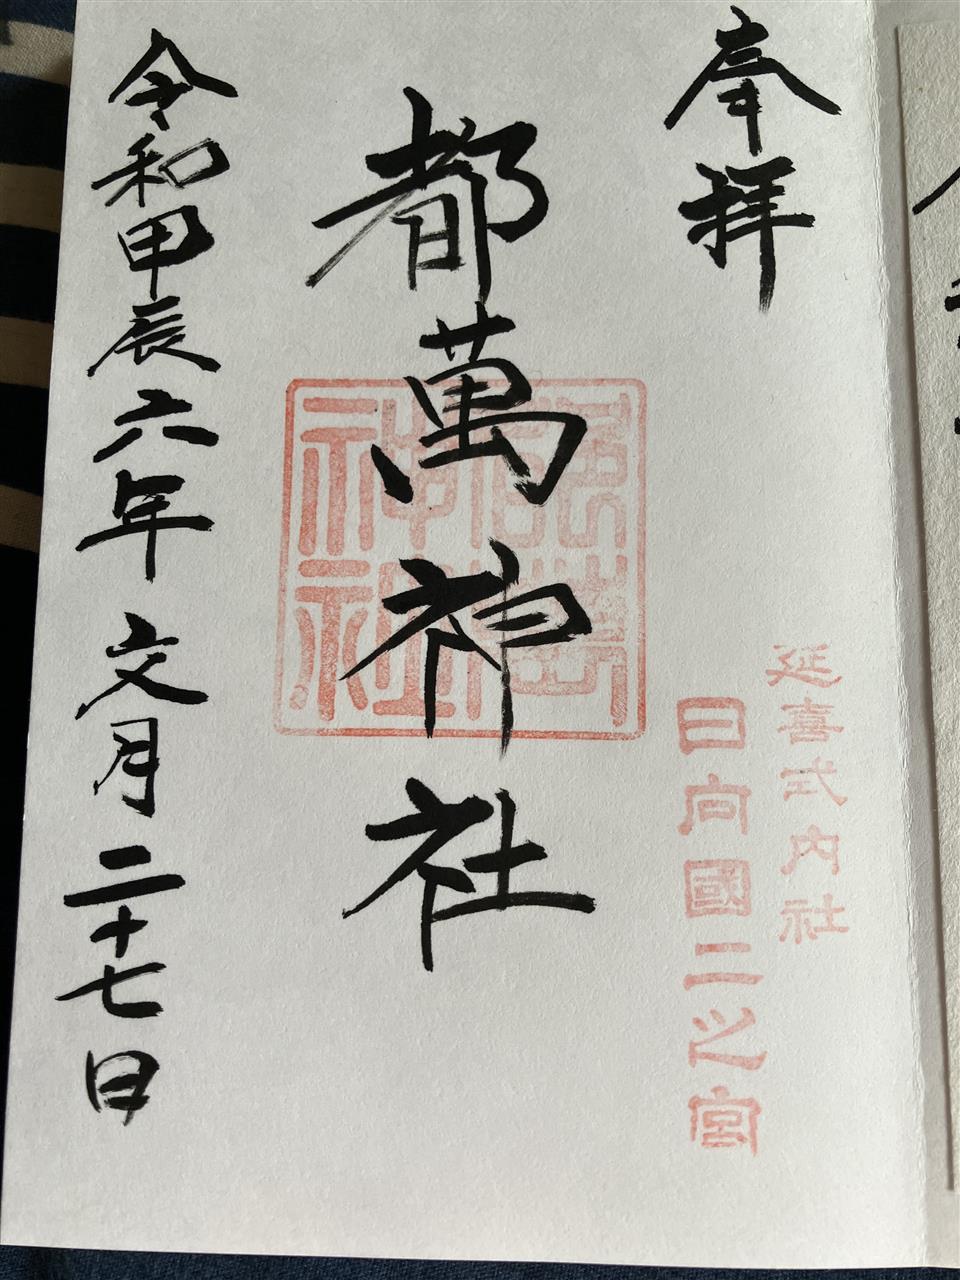 奉拝
延喜式内社
日向國二之宮
都萬神社
都萬神社
令和甲辰六年文月二十七日